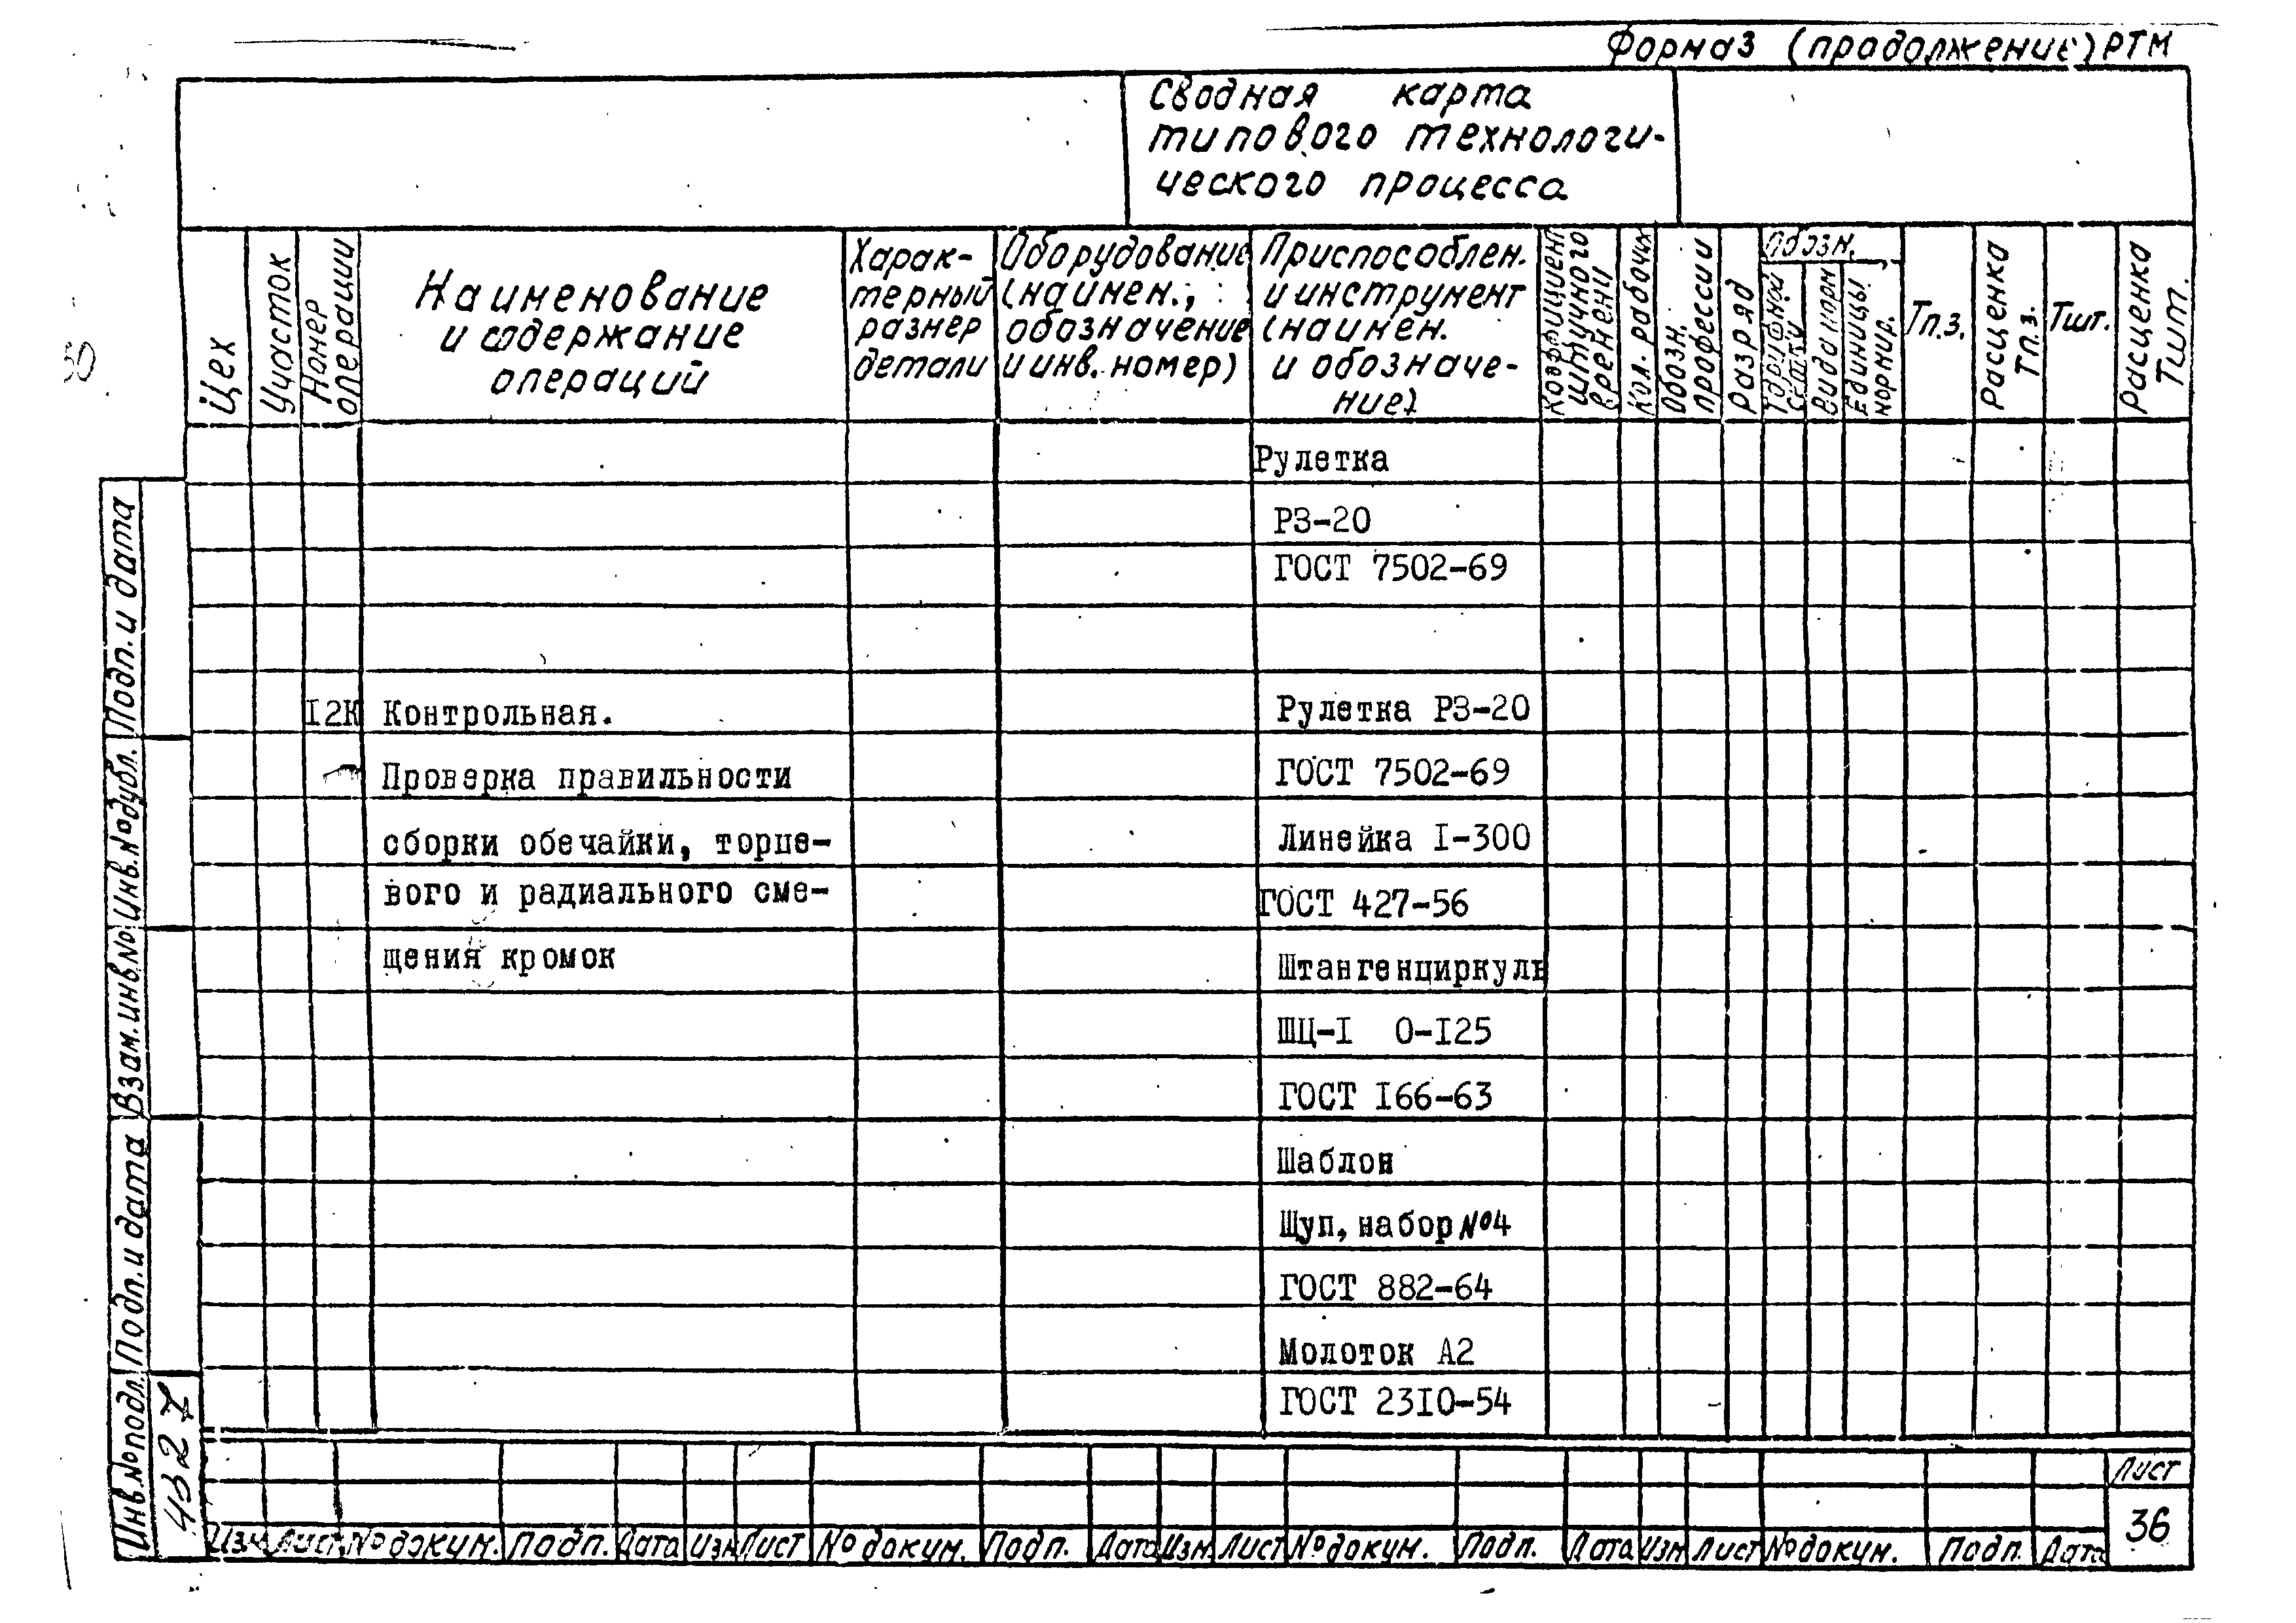 Форма3 (продолжение) РТМ
Сводная карта
типового технологи-
ческого процесса
Цех
Участок
Номер
операции
Наименование
и содержание
операций
Харак-
терный
размер
детали
Оборудование
(наимен.,
обозначение
и инв. номер)
Приспособлен.
и инструмент
(наимен.
и обозначе-
ние)
Коэффициент
штучного
времени
Кол. рабочих
Обозн.
профессии
Разряд
Обозн.
Тарифной
сетки
Вида норм
Единицы
нормир.
Тп.з.
Расценка
Тп.з.
Тшт.
Расценка
Тшт.
Рулетка
РЗ-20
ГОСТ 7502-69
I2К Контрольная. Рулетка РЗ-20
Проверка правильности ГОСТ 7502-69
сборки обечайки, торце- Линейка I-300
вого и радиального сме- ГОСТ 427-56
щения кромок Штангенциркуль
ШЦ-I 0-I25
ГОСТ I66-63
Шаблон
Щуп, набор №4
ГОСТ 882-64
Молоток А2
ГОСТ 23I0-54
Подп. и дата
Инв.№дубл.
Взам.инв.№
Подп. и дата
Инв.№подл.
4327
Изм Лист №докум. Подп. Дата Изм Лист №докум. Подп. Дата Изм. Лист №докум. Подп. Дата Изм Лист №докум. Подп. Дата
Лист
36